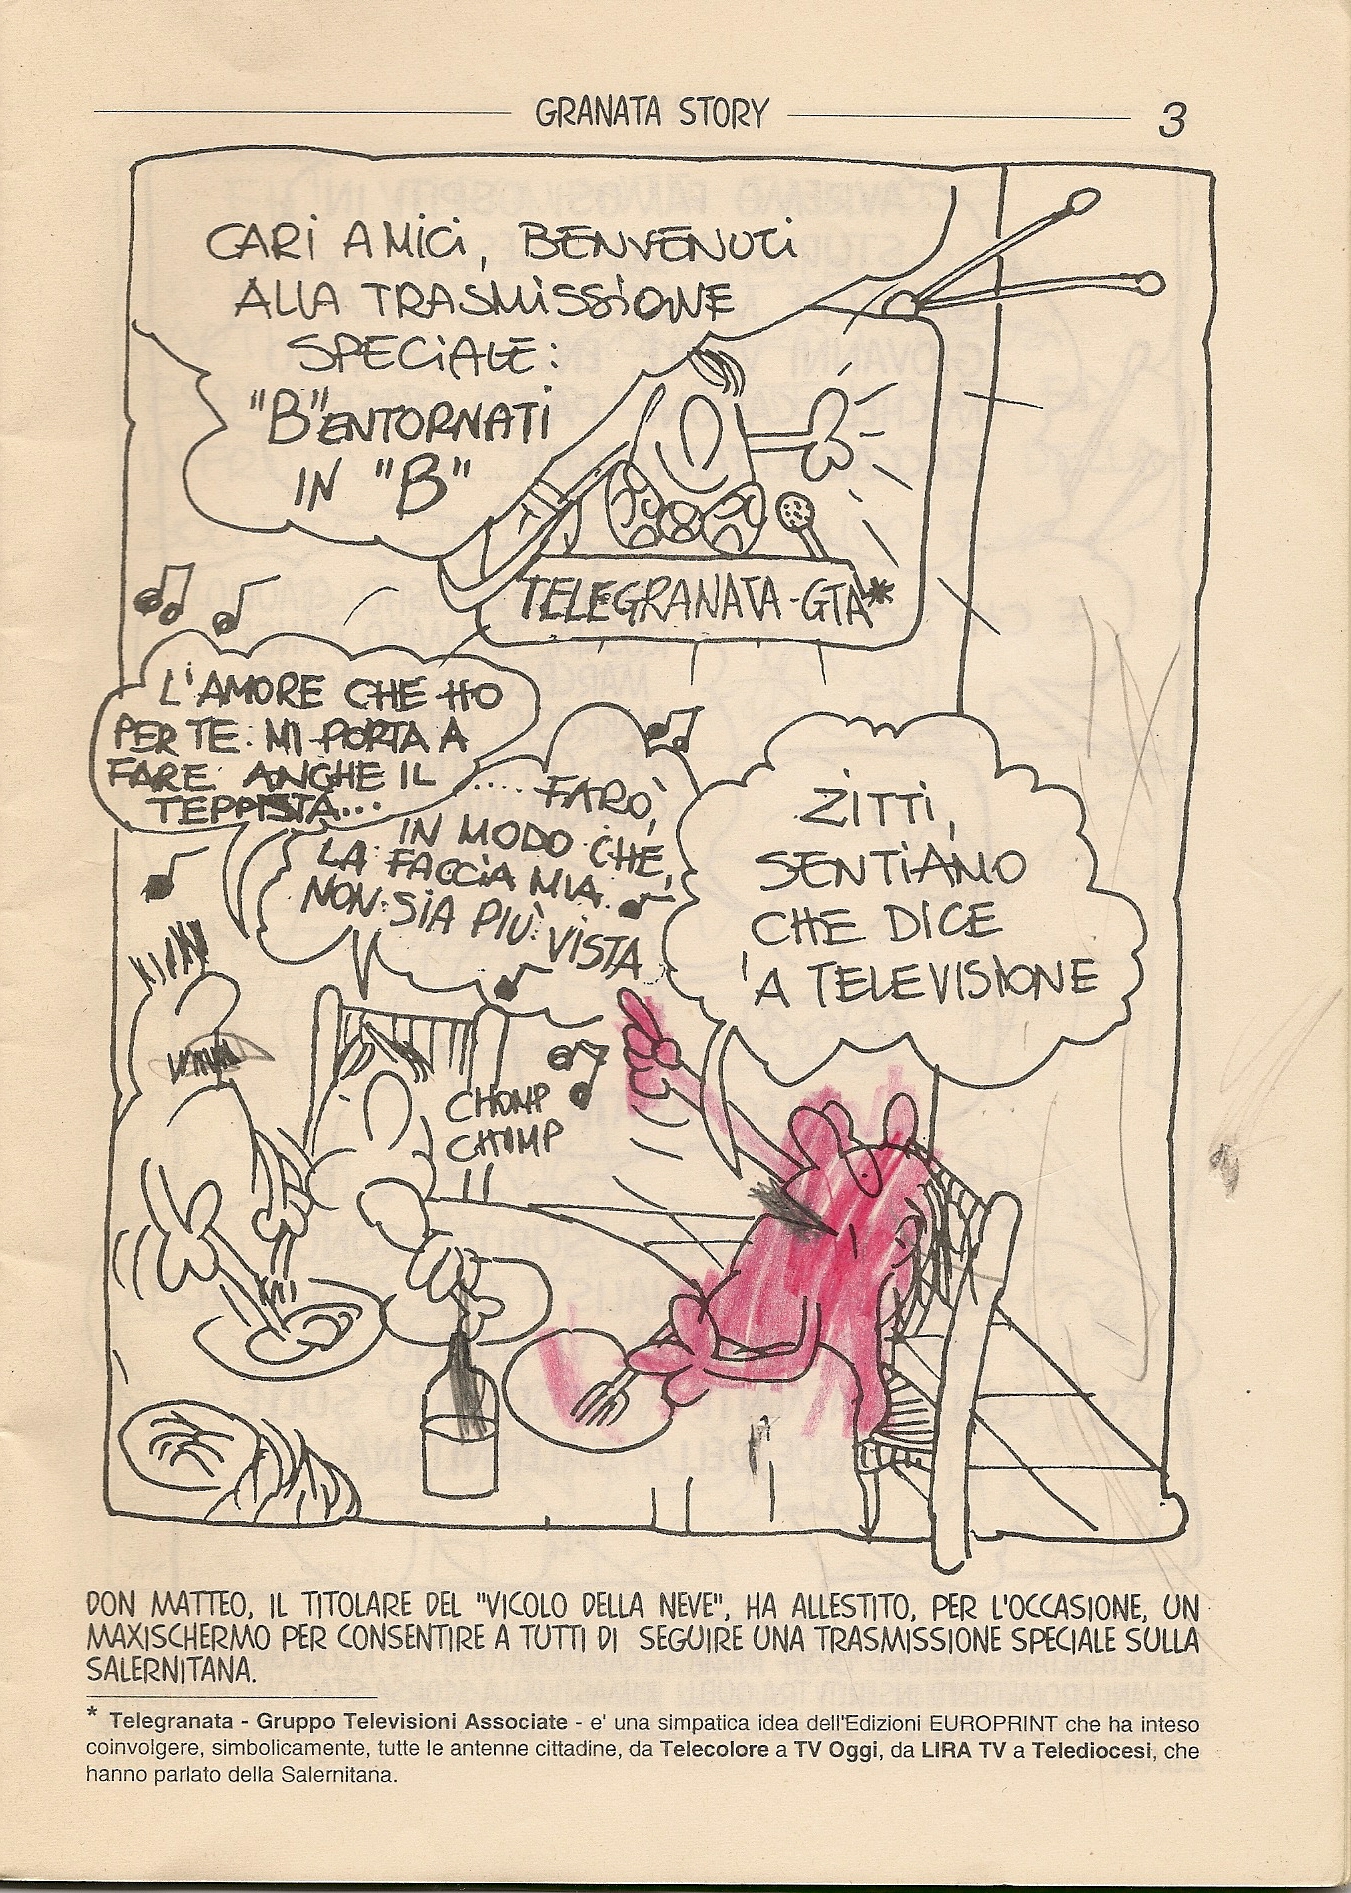 GRANATA STORY
3
CARI AMICI, BENVENUTI
ALLA TRASMISSIONE
SPECIALE:
"B"ENTORNATI
IN "B"
TELEGRANATA-GTA*
L'AMORE CHE HO
PER TE. MI PORTA A
FARE. ANCHE IL
TEPPISTA...
.... FARO',
IN MODO CHE,
LA FACCIA MIA.
NON SIA PIU' VISTA
ZITTI,
SENTIAMO
CHE DICE
'A TELEVISIONE
CHOMP
CHOMP
DON MATTEO, IL TITOLARE DEL "VICOLO DELLA NEVE", HA ALLESTITO, PER L'OCCASIONE, UN
MAXISCHERMO PER CONSENTIRE A TUTTI DI SEGUIRE UNA TRASMISSIONE SPECIALE SULLA
SALERNITANA.
* Telegranata - Gruppo Televisioni Associate - e' una simpatica idea dell'Edizioni EUROPRINT che ha inteso
coinvolgere, simbolicamente, tutte le antenne cittadine, da Telecolore a TV Oggi, da LIRA TV a Telediocesi, che
hanno parlato della Salernitana.